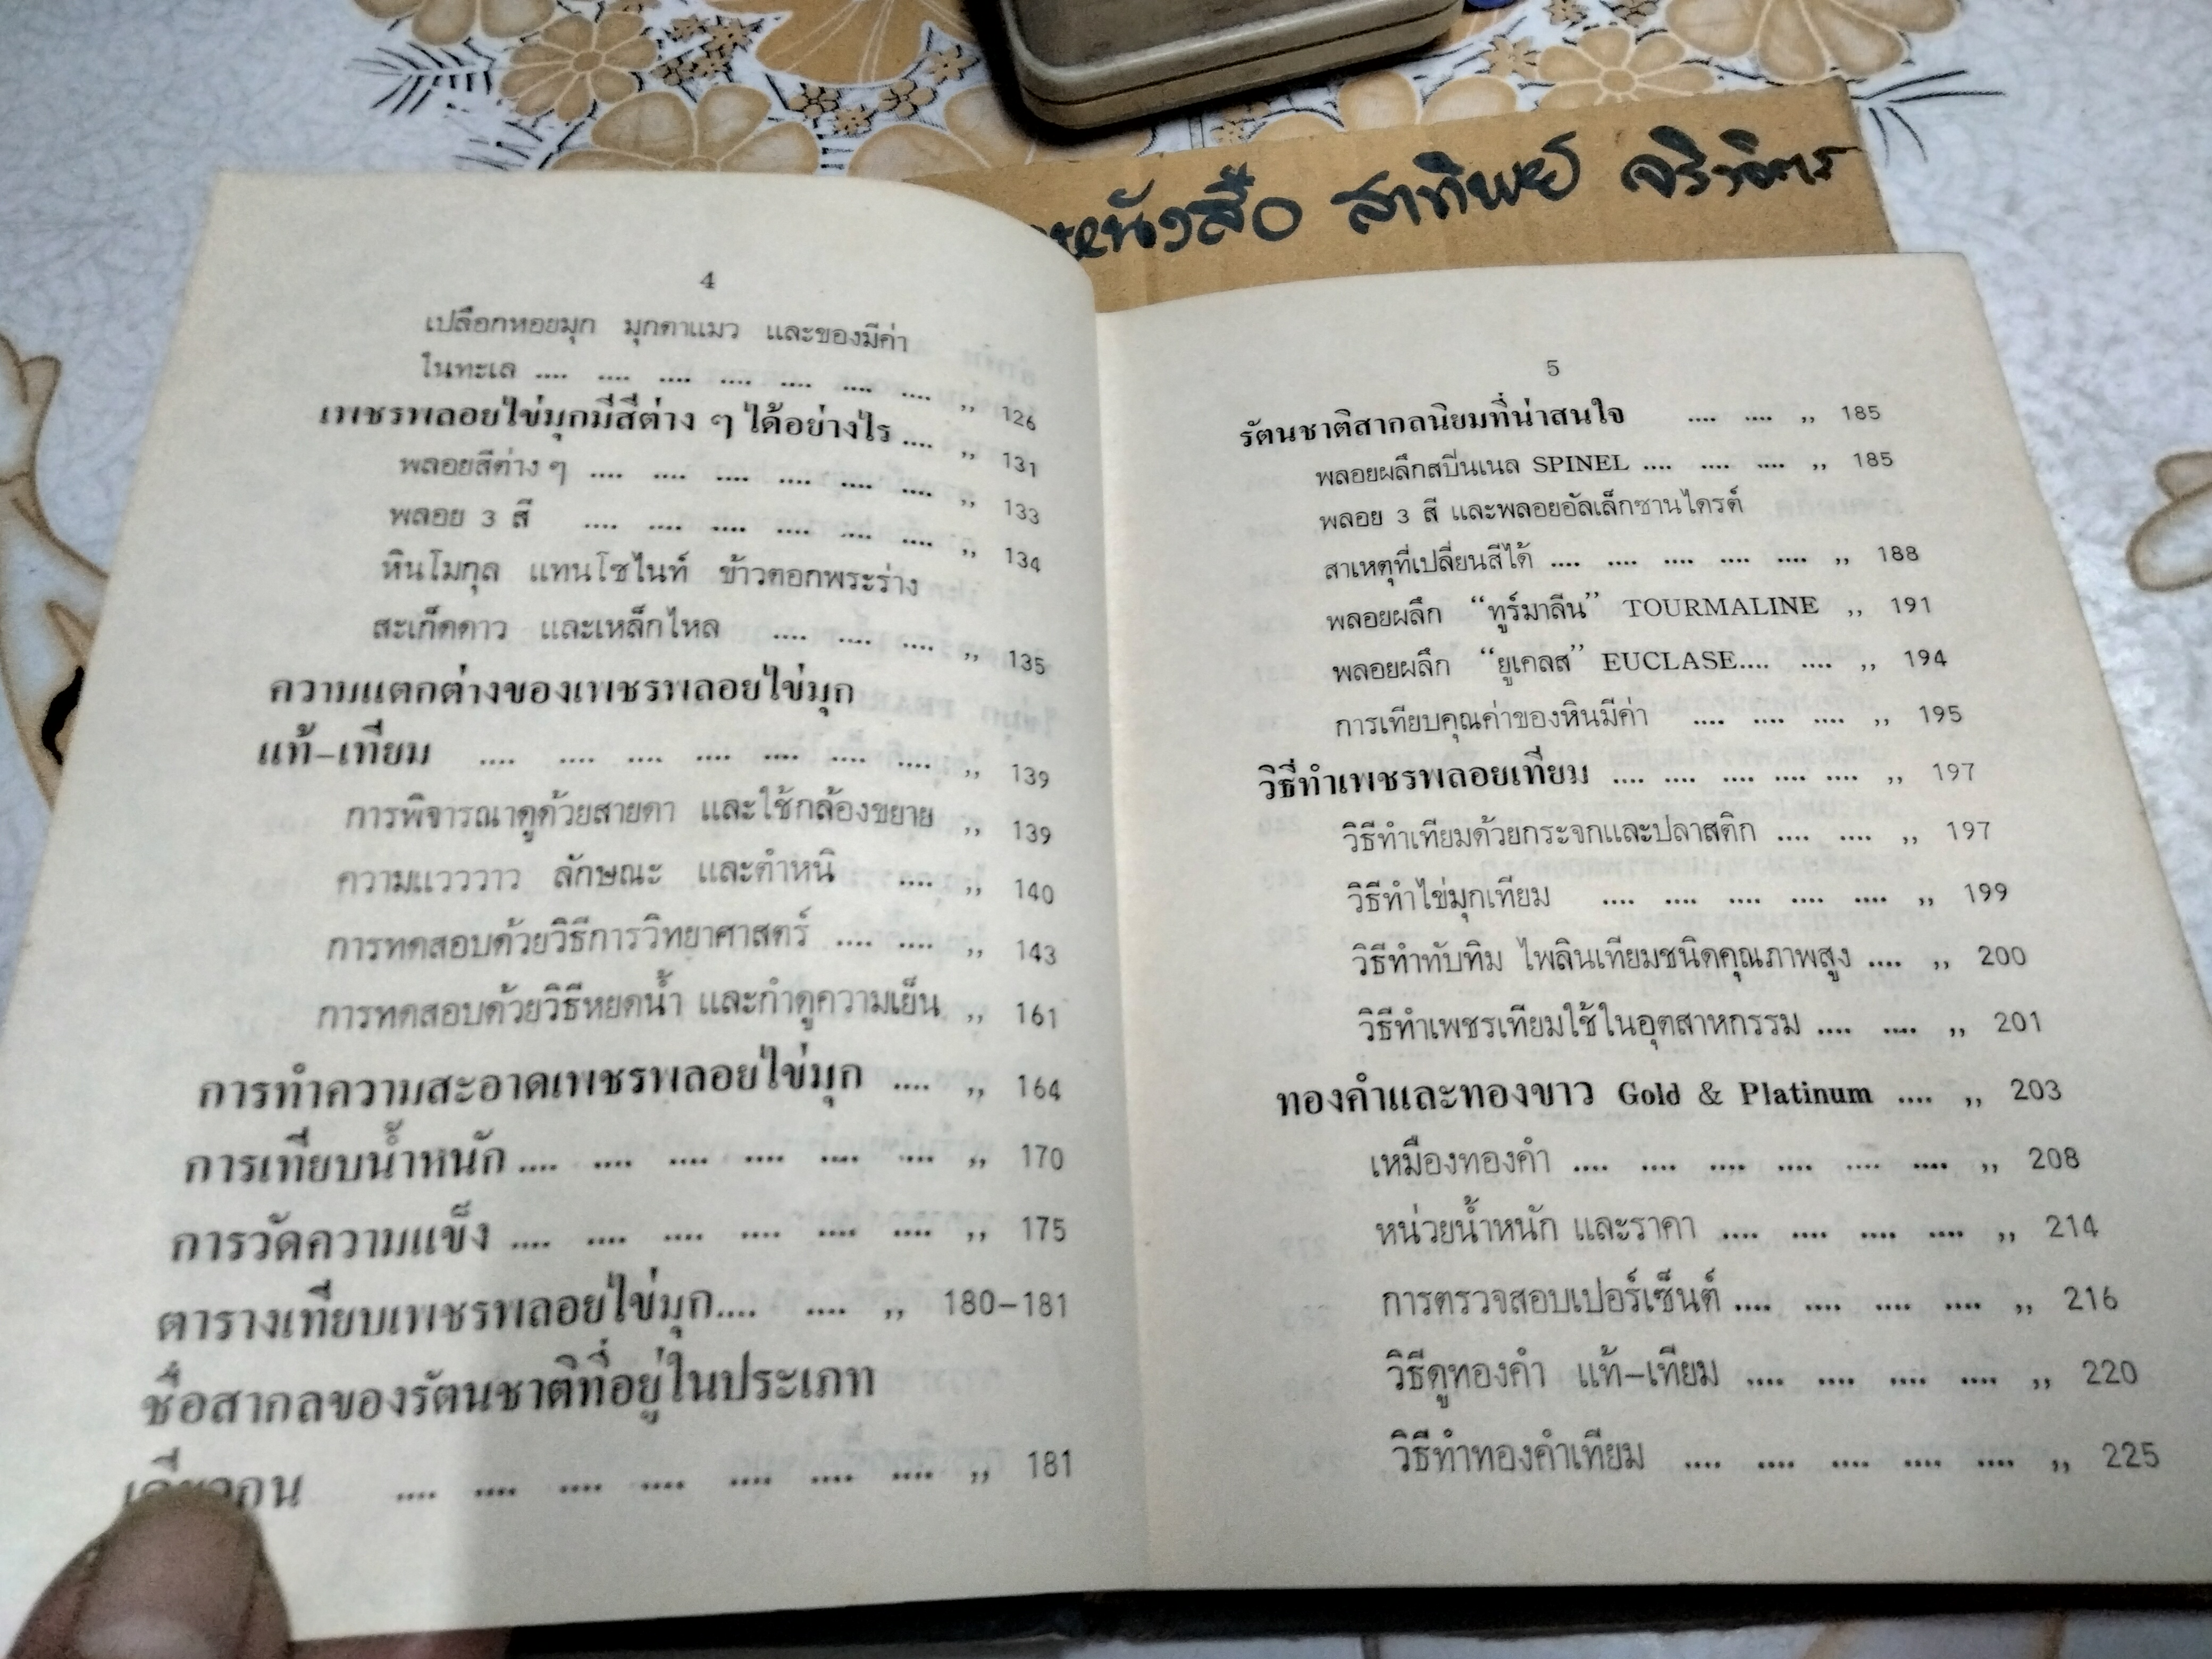 หนังสือ สาทิพย์ จริงจิตร
4
เปลือกหอยมุก มุกตาแมว และของมีค่า
ในทะเล .... .... .... .... .... .... .... ,, 126
เพชรพลอยไข่มุกมีสีต่าง ๆ ได้อย่างไร .... ,, 131
พลอยสีต่าง ๆ .... .... .... .... .... .... ,, 133
พลอย 3 สี .... .... .... .... .... .... ,, 134
หินโมกุล แทนโซไนท์ ข้าวตอกพระร่าง
สะเก็ดดาว และเหล็กไหล .... .... .... ,, 135
ความแตกต่างของเพชรพลอยไข่มุก
แท้-เทียม .... .... .... .... .... .... .... ,, 139
การพิจารณาดูด้วยสายตา และใช้กล้องขยาย ,, 139
ความแวววาว ลักษณะ และตำหนิ .... ,, 140
การทดสอบด้วยวิธีการวิทยาศาสตร์ .... .... ,, 143
การทดสอบด้วยวิธีหยดน้ำ และกำดูความเย็น ,, 161
การทำความสะอาดเพชรพลอยไข่มุก .... ,, 164
การเทียบน้ำหนัก .... .... .... .... .... .... ,, 170
การวัดความแข็ง .... .... .... .... .... .... ,, 175
ตารางเทียบเพชรพลอยไข่มุก.... .... ,, 180-181
ชื่อสากลของรัตนชาติที่อยู่ในประเภท
เดียวกัน .... .... .... .... .... .... .... ,, 181
5
รัตนชาติสากลนิยมที่น่าสนใจ .... .... ,, 185
พลอยผลึกสปีนเนล SPINEL .... .... .... ,, 185
พลอย 3 สี และพลอยอัลเล็กซานไดรต์
สาเหตุที่เปลี่ยนสีได้ .... .... .... .... .... ,, 188
พลอยผลึก “ทูร์มาลีน” TOURMALINE ,, 191
พลอยผลึก “ยูเคลส” EUCLASE.... .... ,, 194
การเทียบคุณค่าของหินมีค่า .... .... .... ,, 195
วิธีทำเพชรพลอยเทียม .... .... .... .... .... ,, 197
วิธีทำเทียมด้วยกระจกและปลาสติก .... .... ,, 197
วิธีทำไข่มุกเทียม .... .... .... .... .... ,, 199
วิธีทำทับทิม ไพลินเทียมชนิดคุณภาพสูง .... ,, 200
วิธีทำเพชรเทียมใช้ในอุตสาหกรรม .... .... ,, 201
ทองคำและทองขาว Gold & Platinum .... ,, 203
เหมืองทองคำ .... .... .... .... .... .... ,, 208
หน่วยน้ำหนัก และราคา .... .... .... .... ,, 214
การตรวจสอบเปอร์เซ็นต์ .... .... .... .... ,, 216
วิธีดูทองคำ แท้-เทียม .... .... .... .... ,, 220
วิธีทำทองคำเทียม .... .... .... .... .... ,, 225